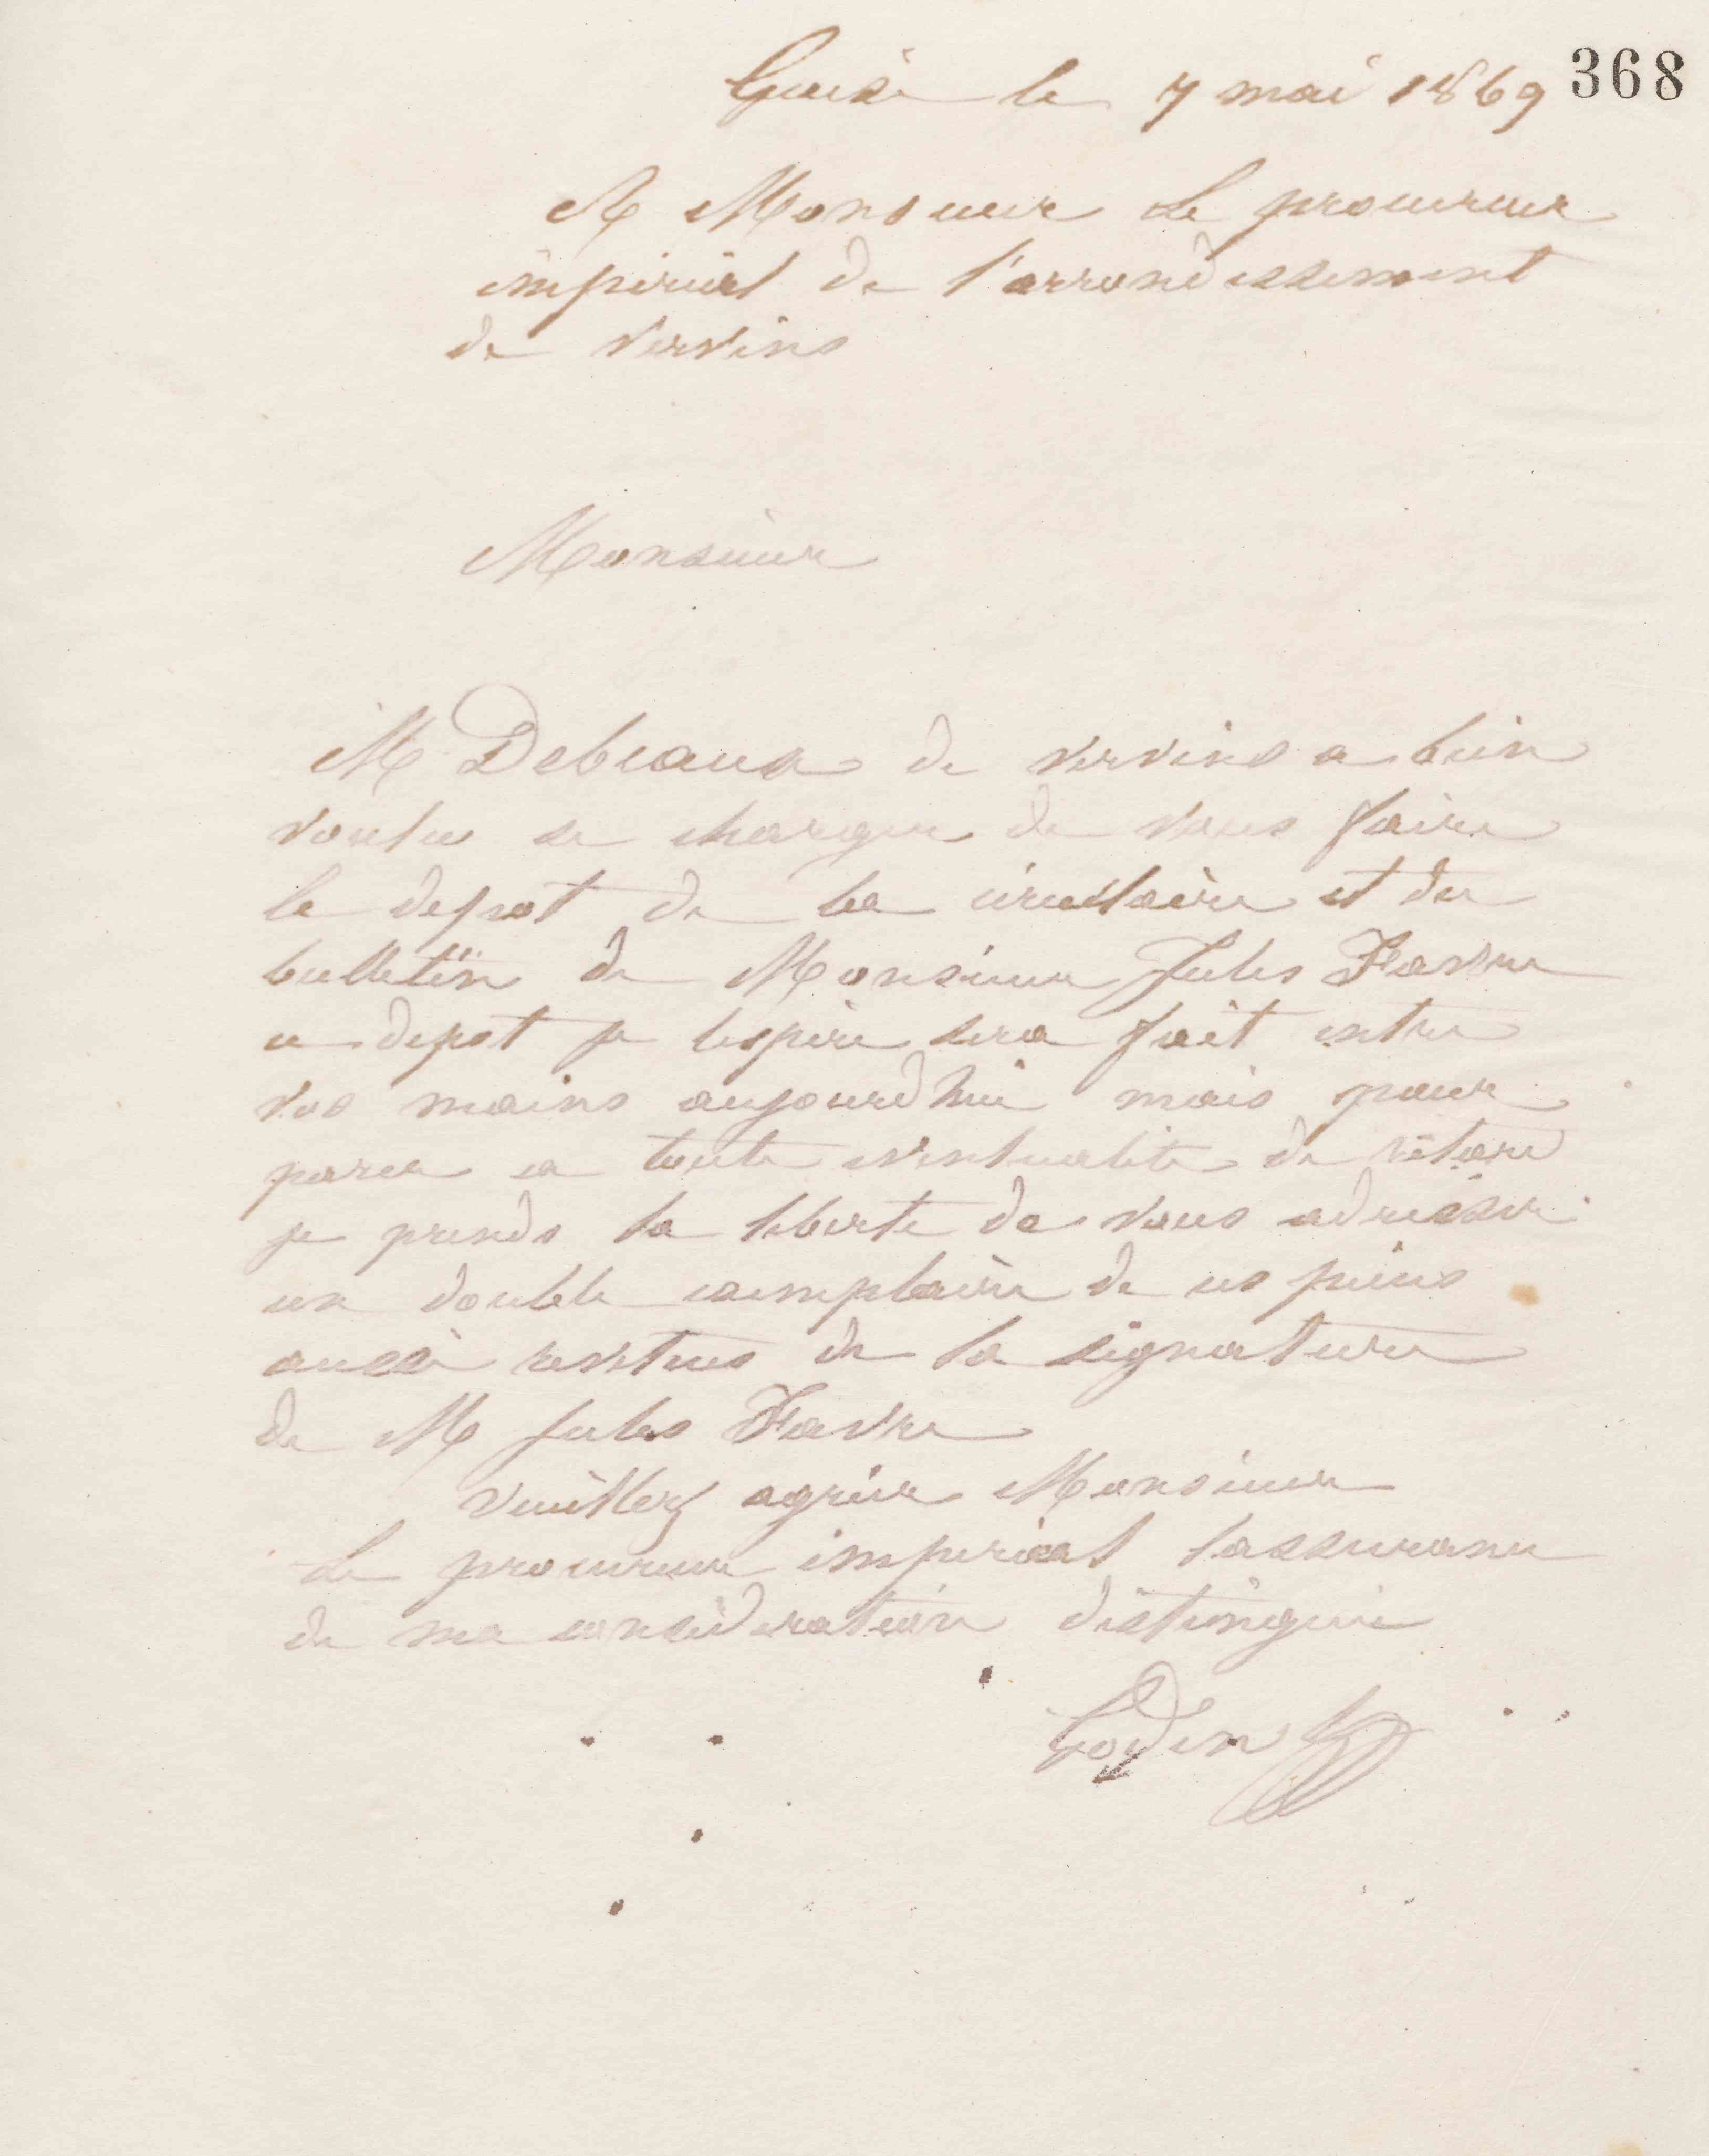 368
Guise le 7 mai 1869
A Monsieur Le procureur
imperial de l'arrondissement
de Vervins
Monsieur
M Debeaux de Vervins a bien
voulu se charger de vous faire
le depot de la circulaire et du
bulletin de Monsieur Jules Favre
ce depot je lespère sera fait entre
vos mains aujourdhui mais pour
parer a toute eventualité de retard
je prends la liberté de vous adresser
un double exemplaire de ces pièces
aussi revetues de la signature
de M Jules Favre
Veuillez agréer Monsieur
Le procureur imperial lassurance
de ma considération distinguée
Godin